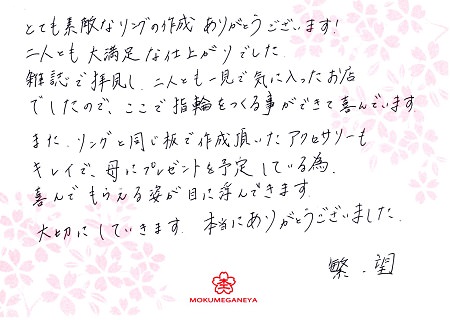 とても素敵なリングの作成 ありがとうございます!
二人とも大満足な仕上がりでした.
雑誌で拝見し、二人とも一見で気に入ったお店
でしたので、ここで指輪をつくる事ができて喜んでいます
また.リングと同じ板で作成頂いたアクセサリーも
キレイで、母にプレゼントを予定している為.
喜んでもらえる姿が目に浮んできます.
大切にしていきます. 本当にありがとうございました.
繁.望
MOKUMEGANEYA